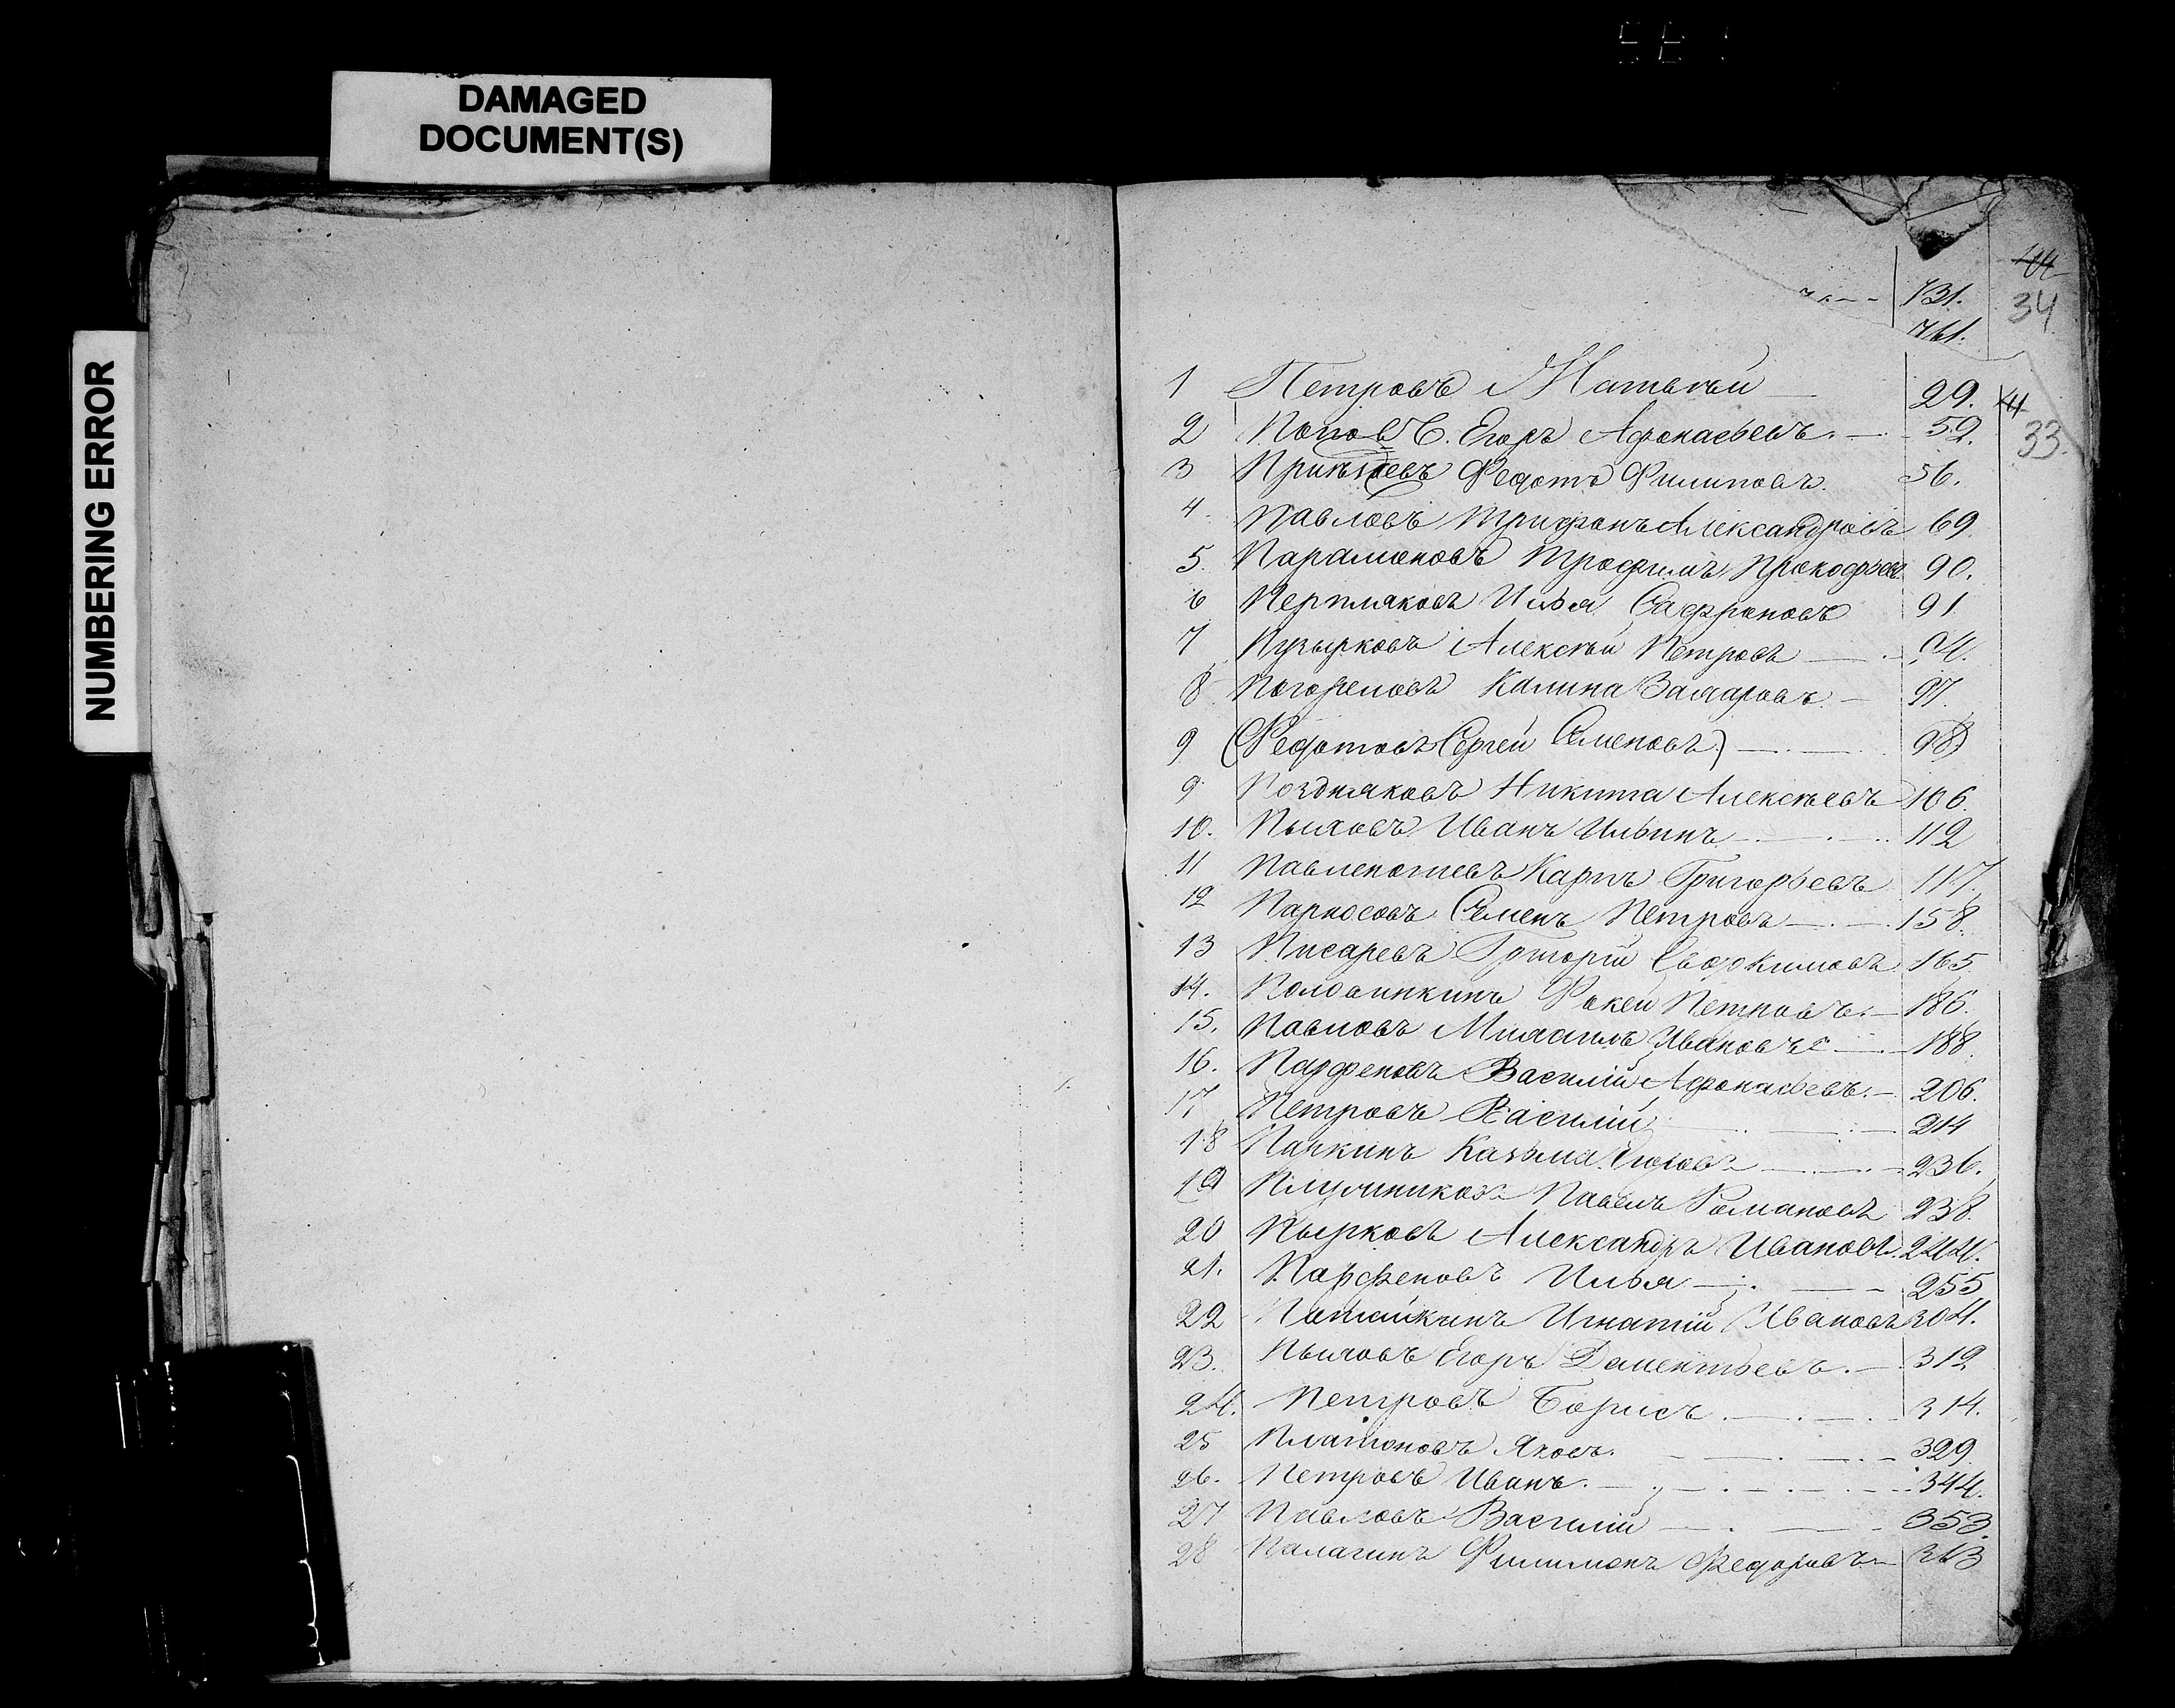 DAMAGED
DOCUMENT(S)
NUMBERING ERROR
731.
34
761.
1 Петровъ Матвѣй 29.
33.
2 Поповъ. Егоръ Афонасьевъ. 52.
3 Федотъ Филиповъ. 56.
4. Павловъ Трифонъ Александровъ 69.
5. Парамоновъ Трофимъ Прокофьев. 90.
6 Пермяковъ Илья Сафроновъ 91
7 Пузырковъ Алексѣй Петровъ 94.
8 Погореловъ Калина Захаровъ. 97.
9 (Федотовъ Сергей Семеновъ) 98
9 Поздняковъ Никита Алексѣевъ 106.
10. Пыховъ Иванъ Ильинъ 112
11 Карпъ Григорьевъ 117.
12 Парносовъ Семенъ Петровъ 158.
13 Писаревъ Григорій Евдокимовъ 165.
14. Фокей Петровъ. 186.
15. Павловъ Михаилъ Ивановъ 188.
16. Парфеновъ Василій Афонасьевъ. 206.
17 Петровъ Василій 214
18 Панкинъ Казьма 236.
19 Павелъ Романовъ 238.
20 Пырковъ Александръ Ивановъ. 244.
21. Парфеновъ Илья 255
22 Игнатій Ивановъ 304.
23. Пыховъ Егоръ Дементьевъ. 312
24. Петровъ Борисъ. 314.
25 Платоновъ Яковъ. 329.
26. Петровъ Иванъ. 344.
27 Павловъ Василій 353.
28 Палагинъ Филимонъ Федоровъ 363